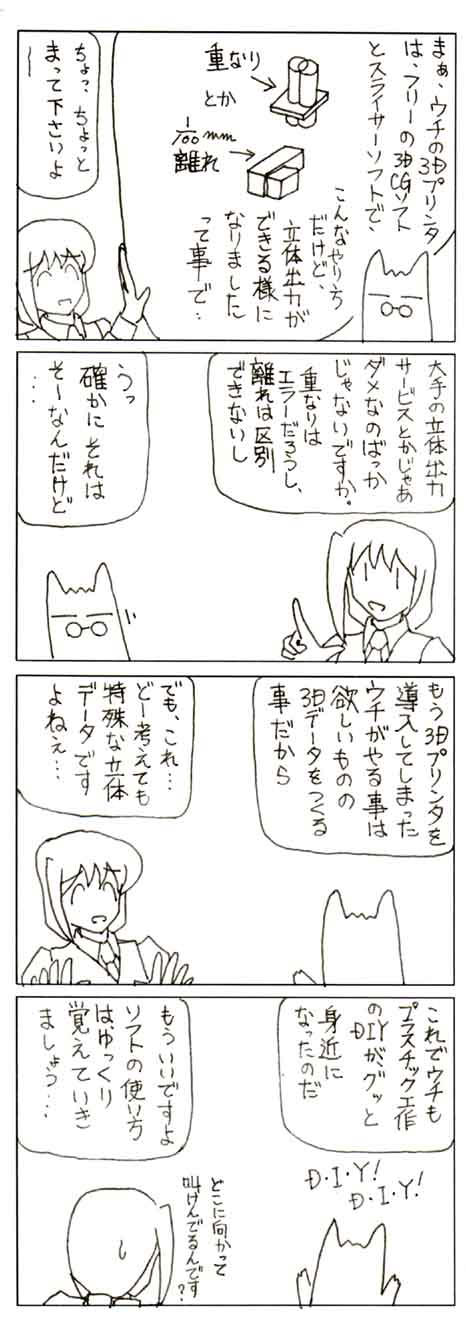 まぁ、ウチの3Dプリンタ
は、フリーの3DCGソフト
とスライサーソフトで、
重なり
とか
1/100mm
離れ
こんなやり方
だけど、
立体出力が
できる様に
なりました
って事で‥
ちょっ、ちょっと
まって下さいよ
ー
大手の立体出力
サービスとかじゃあ
ダメなのばっか
じゃないですか。
重なりは
エラーだろうし、
離れは区別
できないし
うっ
確かにそれは
そーなんだけど
…
もう3Dプリンタを
導入してしまった
ウチがやる事は
欲しいものの
3Dデータをつくる
事だから
でも、これ…
どー考えても
特殊な立体
データです
よねぇ…
これでウチも
プラスチック工作
のDIYが、グッと
身近に
なったのだ
D・I・Y!
D・I・Y!
もういいですよ
ソフトの使い方
は、ゆっくり
覚えていき
ましょう…
どこに向かって
叫けんでるんです?